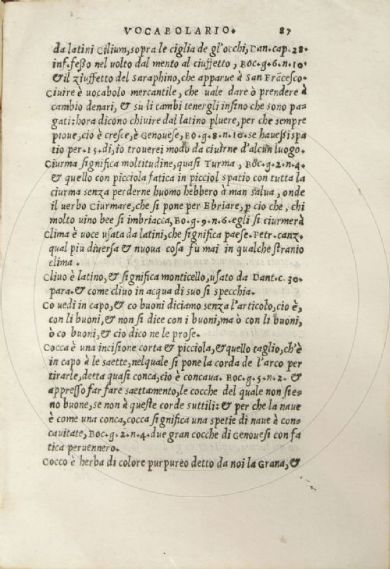 VOCABOLARIO. 87
da latini Cilium, sopra le ciglia de gl'occhi, Dan. cap. 28.
inf. fesso nel volto dal mento al ciuffetto, BOC. g. 6. n. 10
& il ziuffetto del Saraphino, che apparue à San Frãcesco.
Ciuire è uocabolo mercantile, che uale dare ò prendere à
cambio denari, & su li cambi tenergli insino che sono pa-
gati: hora dicono chiuire dal latino pluere, per che sempre
pioue, cio è cresce, è Genouese, BO. g. 8. n. 10. se hauessi spa
tio per .15. di, io trouerei modo da ciuirne d'alcun luogo.
Ciurma significa moltitudine, quasi Turma, BOC. g. 2. n. 4.
& quello con picciola fatica in picciol spatio con tutta la
ciurma senza perderne huomo hebbero à man salua, onde
il uerbo Ciurmare, che si pone per Ebriare, p cio che, chi
molto uino bee si imbriacca, BO. g. 9. n. 6. egli si ciurmerà
Clima è uoce usata da latini, che significa paese. Petr. canz.
qual piu diuersa & nuoua cosa fu mai in qualche stranio
clima.
Cliuo è latino, & significa monticello, usato da Dant. c. 30.
para. & come cliuo in acqua di suo si specchia.
Co uedi in capo, & co buoni diciamo senza l'articolo, cio è,
con li buoni, & non si dice con i buoni, ma ò con li buoni,
ò co buoni, & cio dico ne le prose.
Cocca è una incisione corta & picciola, & quello taglio, ch'è
in capo à le saette, nel quale si pone la corda de l'arco per
tirarle, detta quasi conca, cio è concaua. BOC. g. 5. n. 2. &
appresso far fare saettamento, le cocche del quale non sie-
no buone, se non à queste corde suttili: & per che la naue
è come una conca, cocca significa una spetie di naue è con-
cauitate, BOC. g. 2. n. 4. due gran cocche di Genouesi con fa
tica peruennero.
Cocco è herba di colore purpureo detto da noi la Grana, &